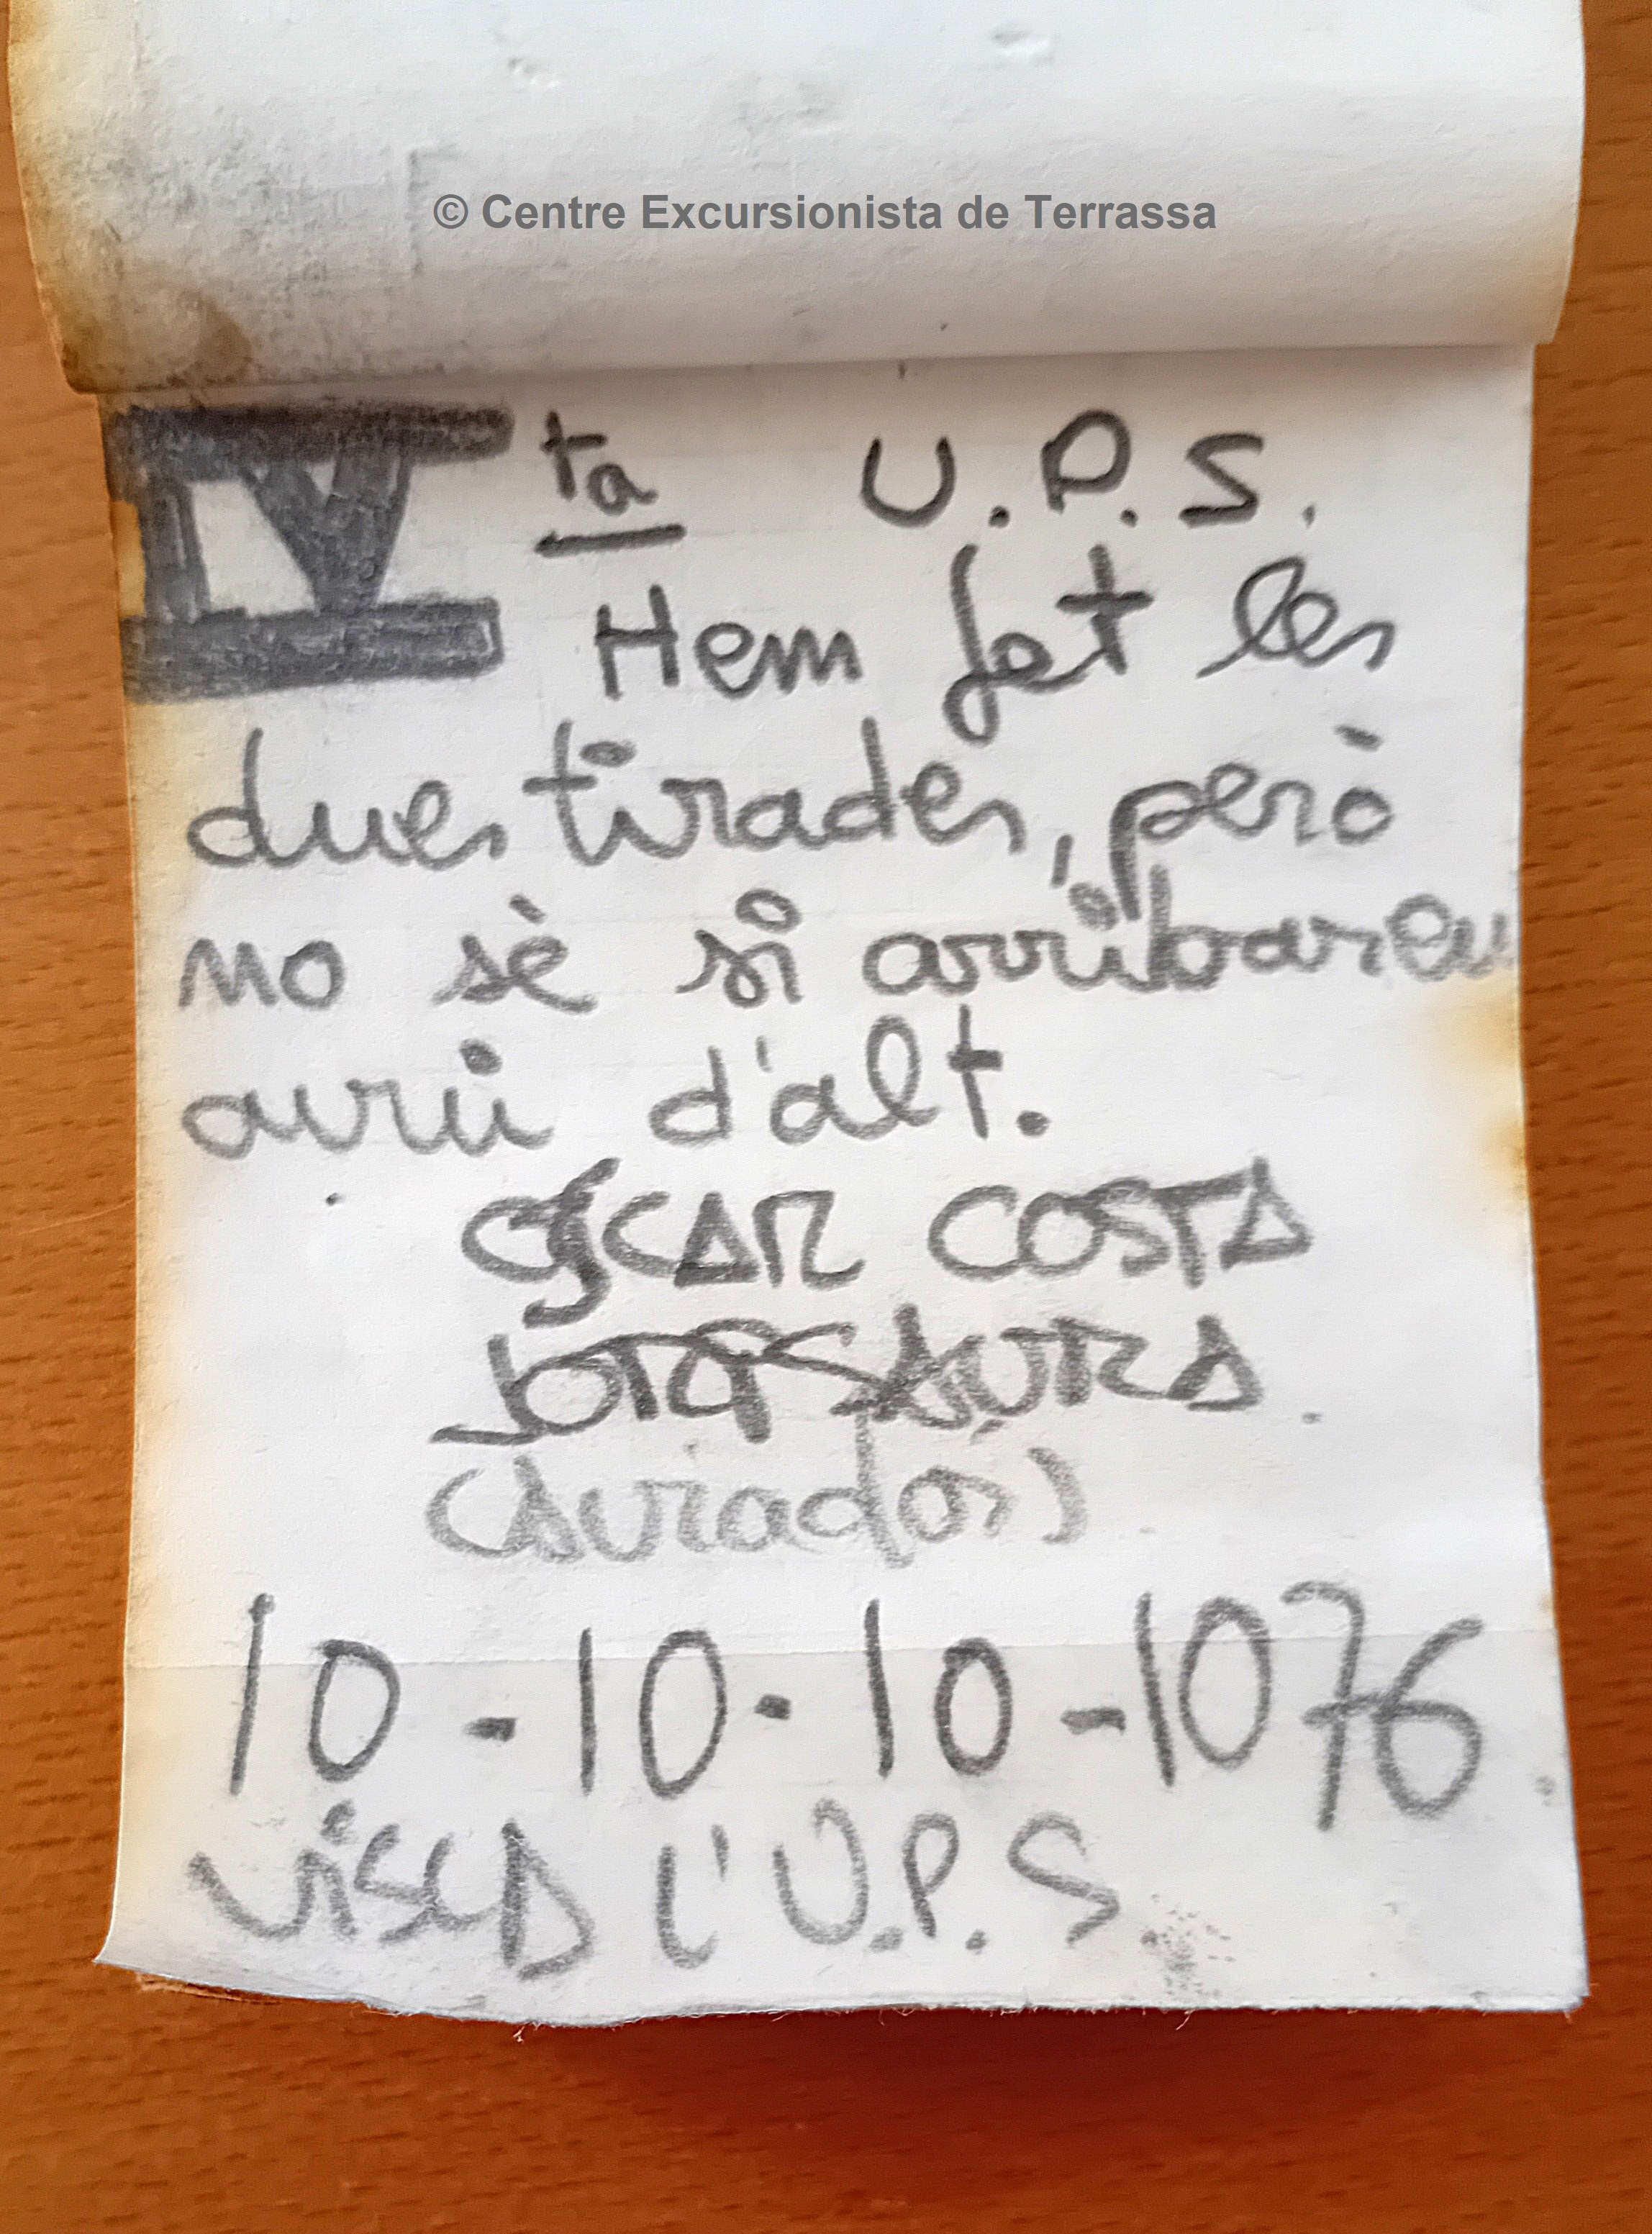 © Centre Excursionista de Terrassa
IV ta U.P.S.
Hem fet les
dues tirades, però
no sè si arribareu
avui d'alt.
OSCAR COSTA
10-10·10-1076
VISCA L'U.P.S.